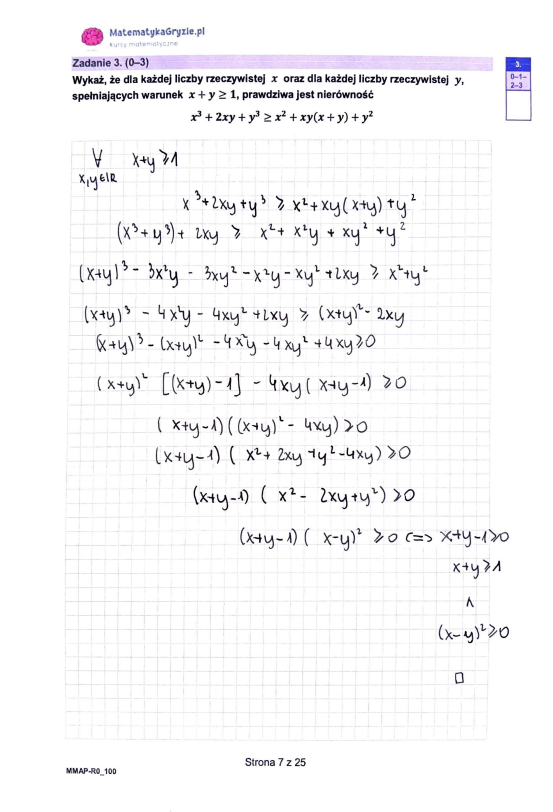 MatematykaGryzie.pl
kursy matematyczne
Zadanie 3. (0–3)
3.
0–1–
2–3
Wykaż, że dla każdej liczby rzeczywistej x oraz dla każdej liczby rzeczywistej y,
spełniających warunek x + y ≥ 1, prawdziwa jest nierówność
x³ + 2xy + y³ ≥ x² + xy(x + y) + y²
∀ x+y ≥ 1
x,y∈ℝ
x³+2xy+y³ ≥ x²+xy(x+y)+y²
(x³+y³)+ 2xy ≥ x²+ x²y + xy² +y²
(x+y)³ - 3x²y - 3xy² - x²y - xy² +2xy ≥ x²+y²
(x+y)³ - 4x²y - 4xy² +2xy ≥ (x+y)² - 2xy
(x+y)³ - (x+y)² - 4x²y - 4xy² + 4xy ≥ 0
(x+y)² [(x+y)-1] - 4xy( x+y-1) ≥ 0
( x+y-1)((x+y)² - 4xy) ≥ 0
(x+y-1) ( x²+ 2xy +y²-4xy) ≥ 0
(x+y-1) ( x² - 2xy+y²) ≥ 0
(x+y-1) ( x-y)² ≥ 0 <=> x+y-1≥0
x+y ≥ 1
∧
(x-y)² ≥ 0
□
Strona 7 z 25
MMAP-R0_100